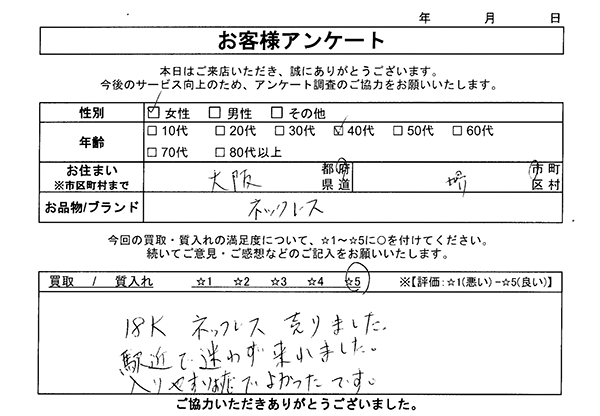 年 月 日
お客様アンケート
本日はご来店いただき、誠にありがとうございます。
今後のサービス向上のため、アンケート調査のご協力をお願いいたします。
性別 ☑ 女性 □ 男性 □ その他
年齢 □ 10代 □ 20代 □ 30代 ☑ 40代 □ 50代 □ 60代
□ 70代 □ 80代以上
お住まい ※市区町村まで 大阪 都府県道 堺 市町区村
お品物/ブランド ネックレス
今回の買取・質入れの満足度について、☆1～☆5に○を付けてください。
続いてご意見・ご感想などのご記入をお願いいたします。
買取 / 質入れ ☆1 ☆2 ☆3 ☆4 ☆5 ※【評価:☆1(悪い)-☆5(良い)】
18K ネックレス 売りました。
駅近で迷わず来れました。
入りやすいお店でよかったです。
ご協力いただきありがとうございました。